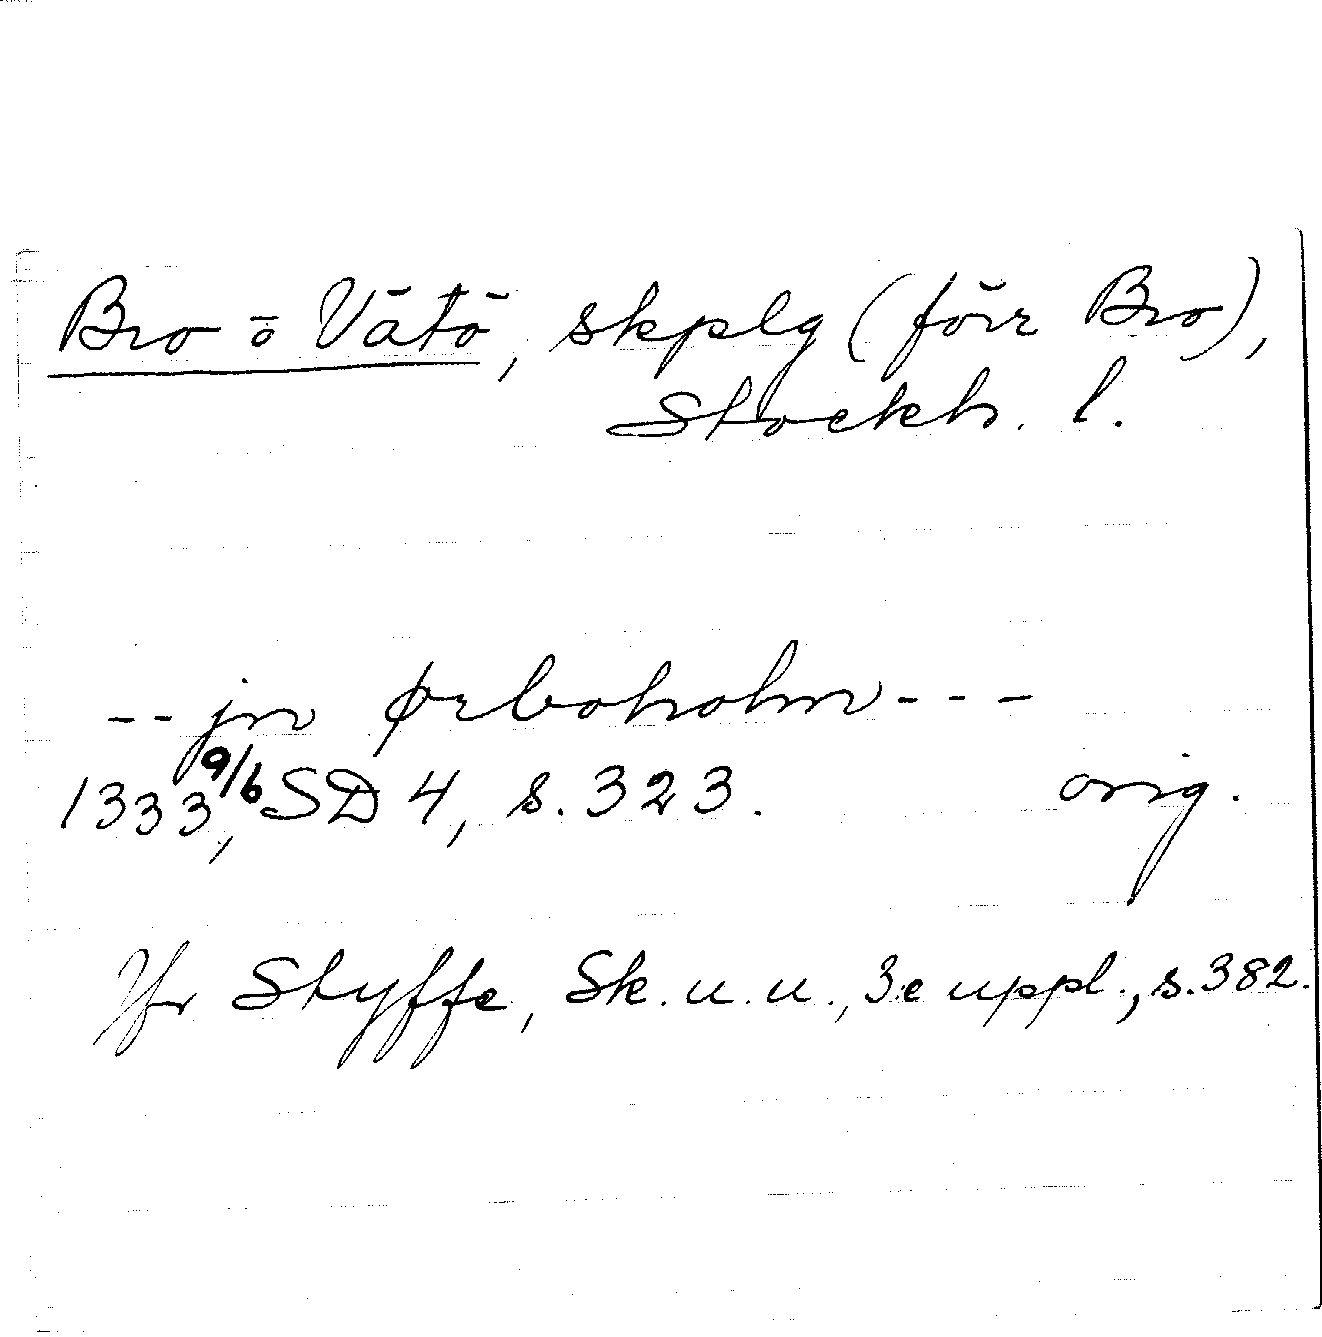 Bro o Vätö, skplg (förr Bro),
Stockh. l.
-- jn ørboholm ---
1333 9/6, SD 4, s. 323. orig.
Jfr Styffe, Sk. u. u., 3e uppl., s. 382.